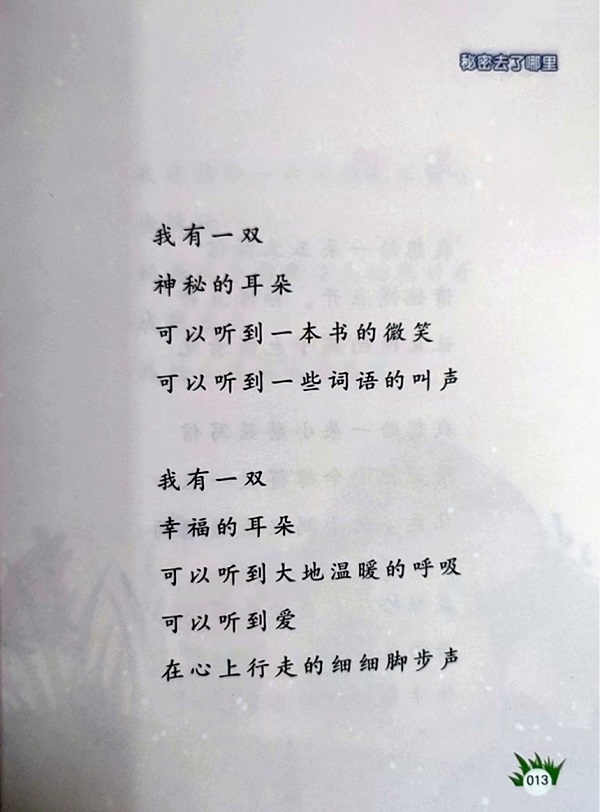 秘密去了哪里
我有一双
神秘的耳朵
可以听到一本书的微笑
可以听到一些词语的叫声
我有一双
幸福的耳朵
可以听到大地温暖的呼吸
可以听到爱
在心上行走的细细脚步声
013